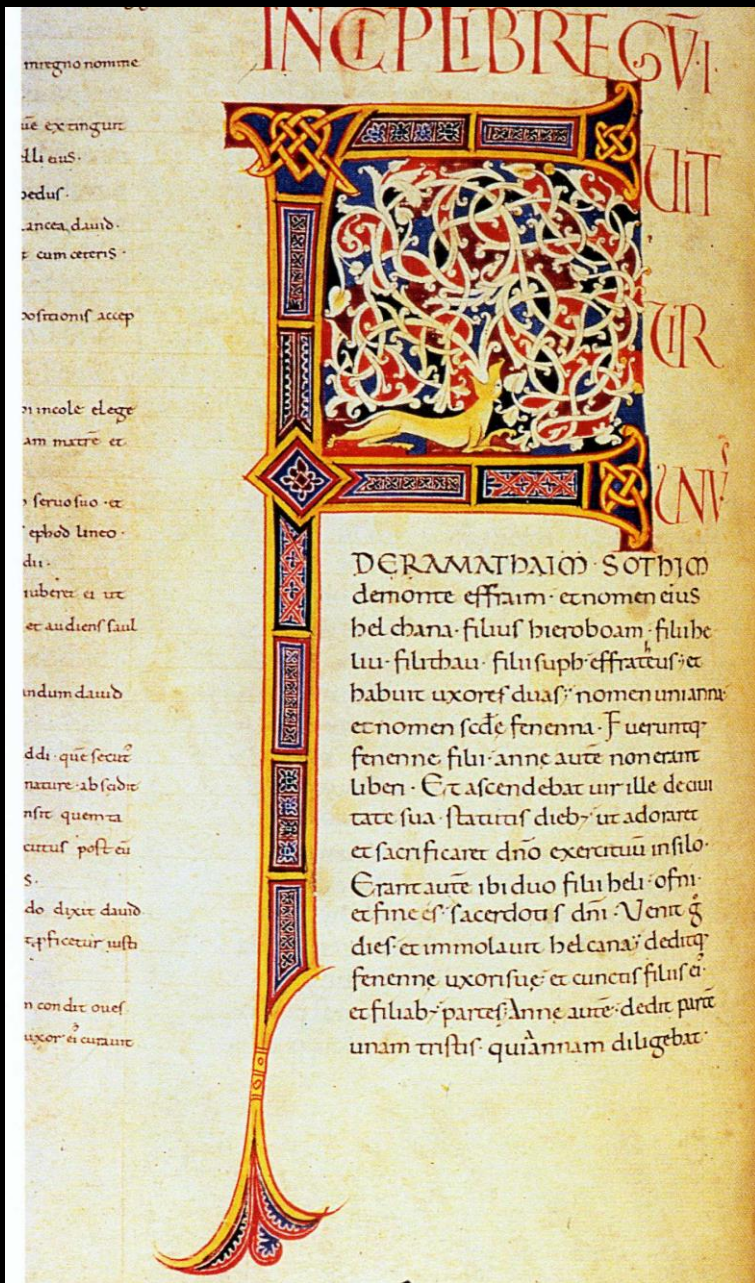 inregno nomine
uē extingunt
elli eius·
pedus·
lancea dauid·
cum ceteris·
positionis accep
incole elege
am matrē et
seruo suo · et
ephod lineo·
dii·
iuberet ei ut
et audiens saul
andum dauid
ddi · que secut᷒
nature · abscidit
nsit quem ta
cutus post eū
s·
do dixit dauid
pficetur iusti
condit oues
uxor ei curauit
INCIP LIB REGV̄·I·
F
UIT
UIR
UNVS
DERAMATHAIM · SOTHIM
demonte effraim · etnomen eius
hel chana · filius hieroboam · filii he
liu · filii thau · filii suph · effrateus; et
habuit uxores duas; nomen uni anna·
et nomen scdę fenenna · Fueruntq·
fenenne filii · anne autē non erant
liberi · Et ascendebat uir ille de ciui
tate sua · statutis dieb; ut adoraret
et sacrificaret dn̄o exercituū in silo·
Erant autē ibi duo filii heli · ofni ·
et finees · sacerdotis dn̄i · Uenit g̊
dies et immolauit hel cana; deditq·
fenenne uxori suę et cunctis filiis ei·
et filiab; partes; Anne autē · dedit partē
unam tristis · quia annam diligebat·